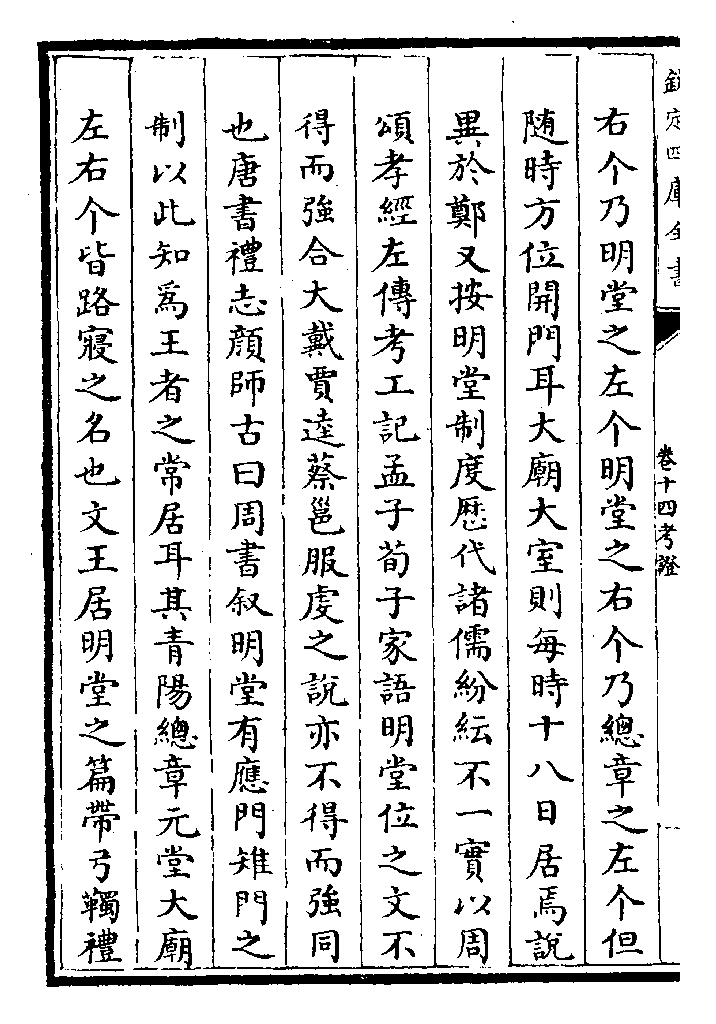 欽定四庫全書
卷十四考證
右个乃明堂之左个明堂之右个乃總章之左个但
随時方位開門耳大廟大室則每時十八日居焉說
異於鄭又按明堂制度歷代諸儒紛紜不一實以周
頌孝經左傳考工記孟子荀子家語明堂位之文不
得而強合大戴賈逵蔡邕服虔之說亦不得而強同
也唐書禮志顔師古曰周書叙明堂有應門雉門之
制以此知爲王者之常居耳其青陽總章元堂大廟
左右个皆路寢之名也文王居明堂之篇帶弓韣禮